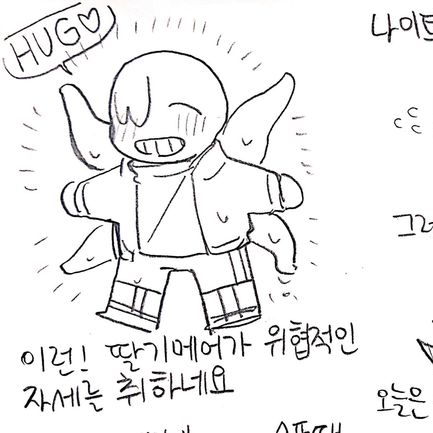 HUG♡
이런! 딸기메어가 위협적인
자세를 취하네요
그러
오늘은